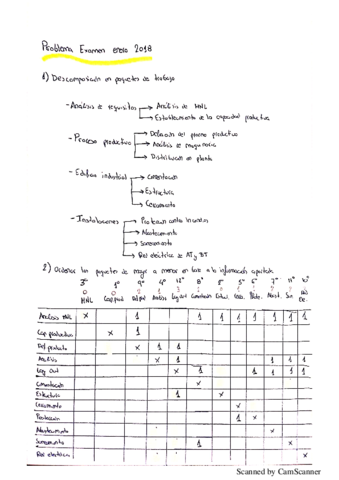 Problema Examen enero 2018
1) Descomposición en paquetes de trabajo
- Análisis de requisitos → Análisis de MNL
→ Establecimiento de la capacidad productiva
- Proceso productivo → Definición del proceso productivo
→ Análisis de maquinaria
→ Distribución en planta
- Edificio industrial → Cimentación
→ Estructura
→ Cerramiento
- Instalaciones → Protección contra incendios
→ Abastecimiento
→ Saneamiento
→ Red eléctrica de AT y BT
2) Ordenar los paquetes de mayor a menor en base a la información aportada
3º 1º 9º 4º 12º 8º 5º 6º 7º 11º 10º
MNL Cap.prod Def.pal Análisis Lay out Cimentación Estruc. Cerra. Prote. Abast. San Red Ele.
Análisis MNL X 1 1 1 1 1 1 1 1
Cap productiva X 1
Def. producto X 1 1
Análisis X 1 1 1 1
Lay Out X 1 1 1 1
Cimentación X
Estructura 1 X
Cerramiento X
Protección 1 X
Abastecimiento X
Saneamiento 1 X
Red eléctrica X
Scanned by CamScanner